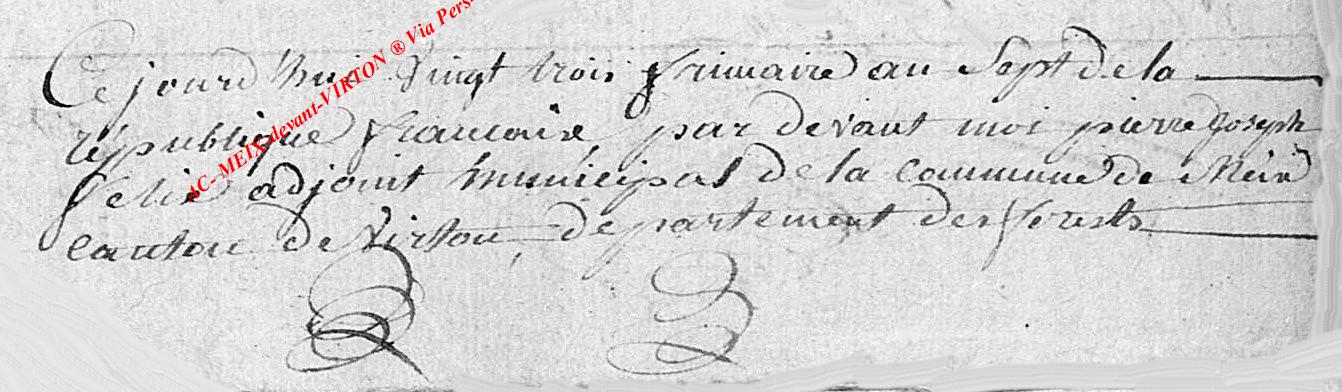 Ce jourd'huis vingt trois frimaire an Sept de la
republique francaise par devant moi pierre Joseph
felix adjoint municipal de la commune de Meix
canton de Virton departement des forests
AC- MEIX-devant-VIRTON ® Via Pers